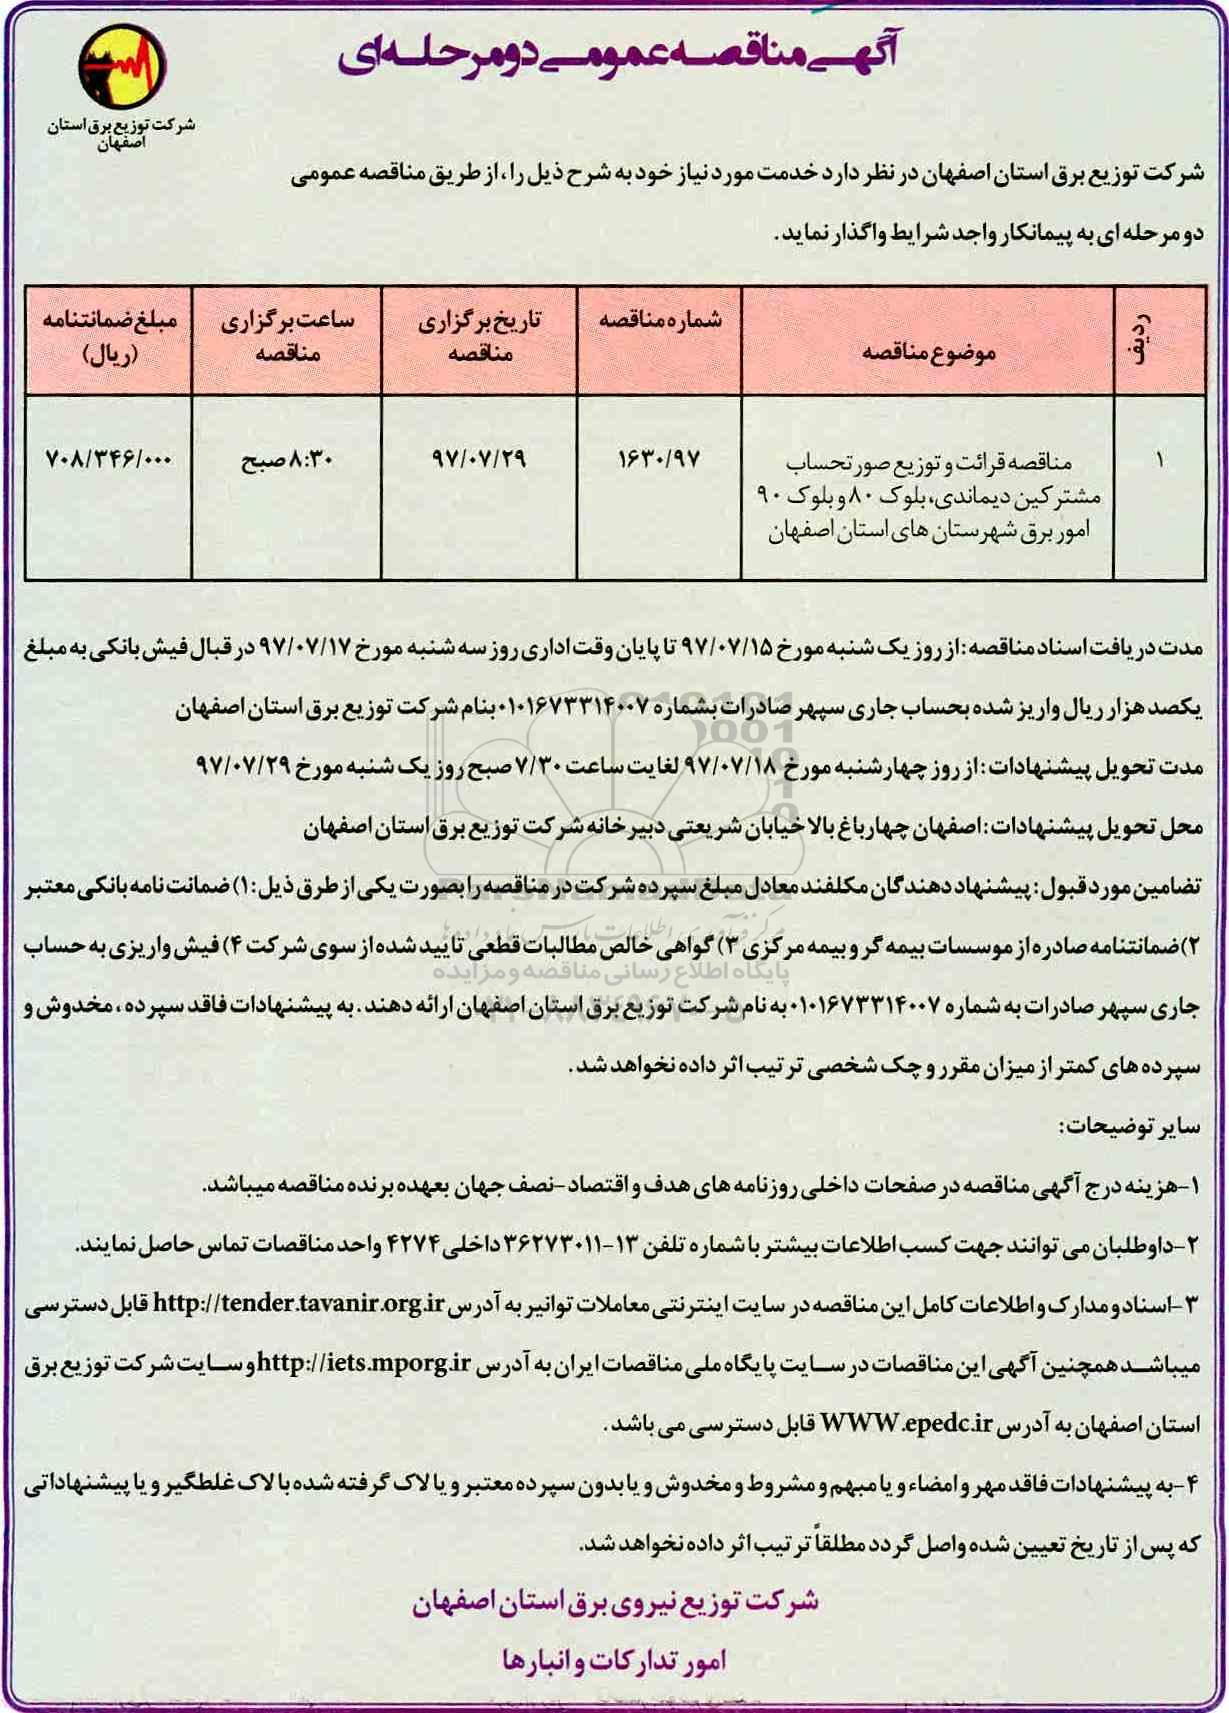 آگهی مناقصه عمومی دو مرحله ای
شرکت توزیع برق استان
اصفهان
شرکت توزیع برق استان اصفهان در نظر دارد خدمت مورد نیاز خود به شرح ذیل را ، از طریق مناقصه عمومی
دو مرحله ای به پیمانکار واجد شرایط واگذار نماید.
ردیف
موضوع مناقصه
شماره مناقصه
تاریخ برگزاری
مناقصه
ساعت برگزاری
مناقصه
مبلغ ضمانتنامه
(ریال)
۱
مناقصه قرائت و توزیع صورتحساب
مشترکین دیماندی، بلوک ۸۰ و بلوک ۹۰
امور برق شهرستان های استان اصفهان
۱۶۳۰/۹۷
۹۷/۰۷/۲۹
۸:۳۰ صبح
۷۰۸/۳۴۶/۰۰۰
مدت دریافت اسناد مناقصه : از روز یک شنبه مورخ ۹۷/۰۷/۱۵ تا پایان وقت اداری روز سه شنبه مورخ ۹۷/۰۷/۱۷ در قبال فیش بانکی به مبلغ
یکصد هزار ریال واریز شده بحساب جاری سپهر صادرات بشماره ۰۱۰۱۶۷۳۳۱۴۰۰۷ بنام شرکت توزیع برق استان اصفهان
مدت تحویل پیشنهادات : از روز چهارشنبه مورخ ۹۷/۰۷/۱۸ لغایت ساعت ۷/۳۰ صبح روز یک شنبه مورخ ۹۷/۰۷/۲۹
محل تحویل پیشنهادات : اصفهان چهارباغ بالا خیابان شریعتی دبیرخانه شرکت توزیع برق استان اصفهان
تضامین مورد قبول : پیشنهاد دهندگان مکلفند معادل مبلغ سپرده شرکت در مناقصه را بصورت یکی از طرق ذیل : ۱) ضمانت نامه بانکی معتبر
۲) ضمانتنامه صادره از موسسات بیمه گر و بیمه مرکزی ۳) گواهی خالص مطالبات قطعی تایید شده از سوی شرکت ۴) فیش واریزی به حساب
جاری سپهر صادرات به شماره ۰۱۰۱۶۷۳۳۱۴۰۰۷ به نام شرکت توزیع برق استان اصفهان ارائه دهند . به پیشنهادات فاقد سپرده ، مخدوش و
سپرده های کمتر از میزان مقرر و چک شخصی ترتیب اثر داده نخواهد شد .
سایر توضیحات:
۱-هزینه درج آگهی مناقصه در صفحات داخلی روزنامه های هدف و اقتصاد -نصف جهان بعهده برنده مناقصه میباشد.
۲-داوطلبان می توانند جهت کسب اطلاعات بیشتر با شماره تلفن ۱۳-۳۶۲۷۳۰۱۱ داخلی ۴۲۷۴ واحد مناقصات تماس حاصل نمایند.
۳-اسناد و مدارک و اطلاعات کامل این مناقصه در سایت اینترنتی معاملات توانیر به آدرس http://tender.tavanir.org.ir قابل دسترسی
میباشد همچنین آگهی این مناقصات در سایت پایگاه ملی مناقصات ایران به آدرس http://iets.mporg.ir و سایت شرکت توزیع برق
استان اصفهان به آدرس WWW.epedc.ir قابل دسترسی می باشد .
۴-به پیشنهادات فاقد مهر و امضاء و یا مبهم و مشروط و مخدوش و یا بدون سپرده معتبر و یا لاک گرفته شده با لاک غلطگیر و یا پیشنهاداتی
که پس از تاریخ تعیین شده واصل گردد مطلقاً ترتیب اثر داده نخواهد شد.
شرکت توزیع نیروی برق استان اصفهان
امور تدارکات و انبارها
پایگاه اطلاع رسانی مناقصه و مزایده